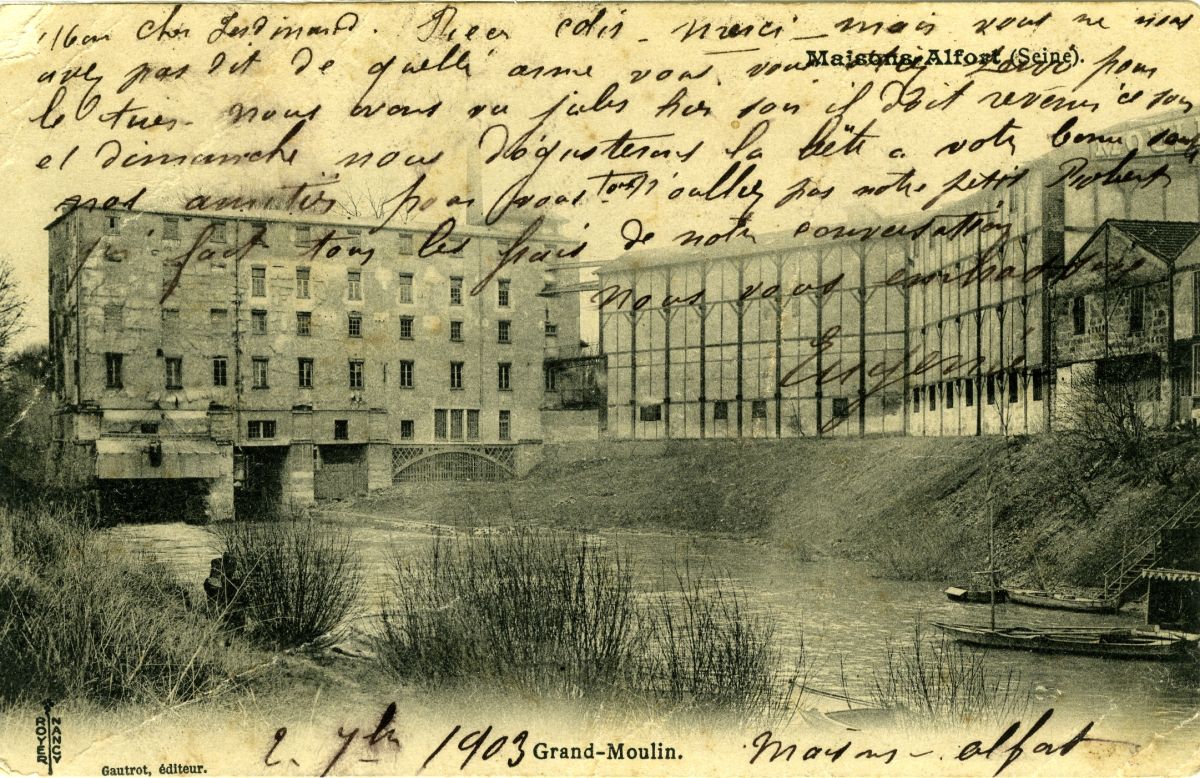 Mon cher Ferdinand. Recu colis - merci - mais vous ne nous
Maisons-Alfort (Seine).
avez pas dit de quelle arme vous vous servi pour
le tuer. nous avons vu jules hier soir il doit revenir ce soir
et dimanche nous dégusterons la bête a votre bonne santé
nos amitiés pour vous tous n'oubliez pas notre petit Robert
j'ai fait tous les frais de notre conversation
nous vous embrassons
Eugénie
ROYER NANCY
Gautrot, éditeur.
2 7bre 1903
Grand-Moulin.
Maisons-alfort